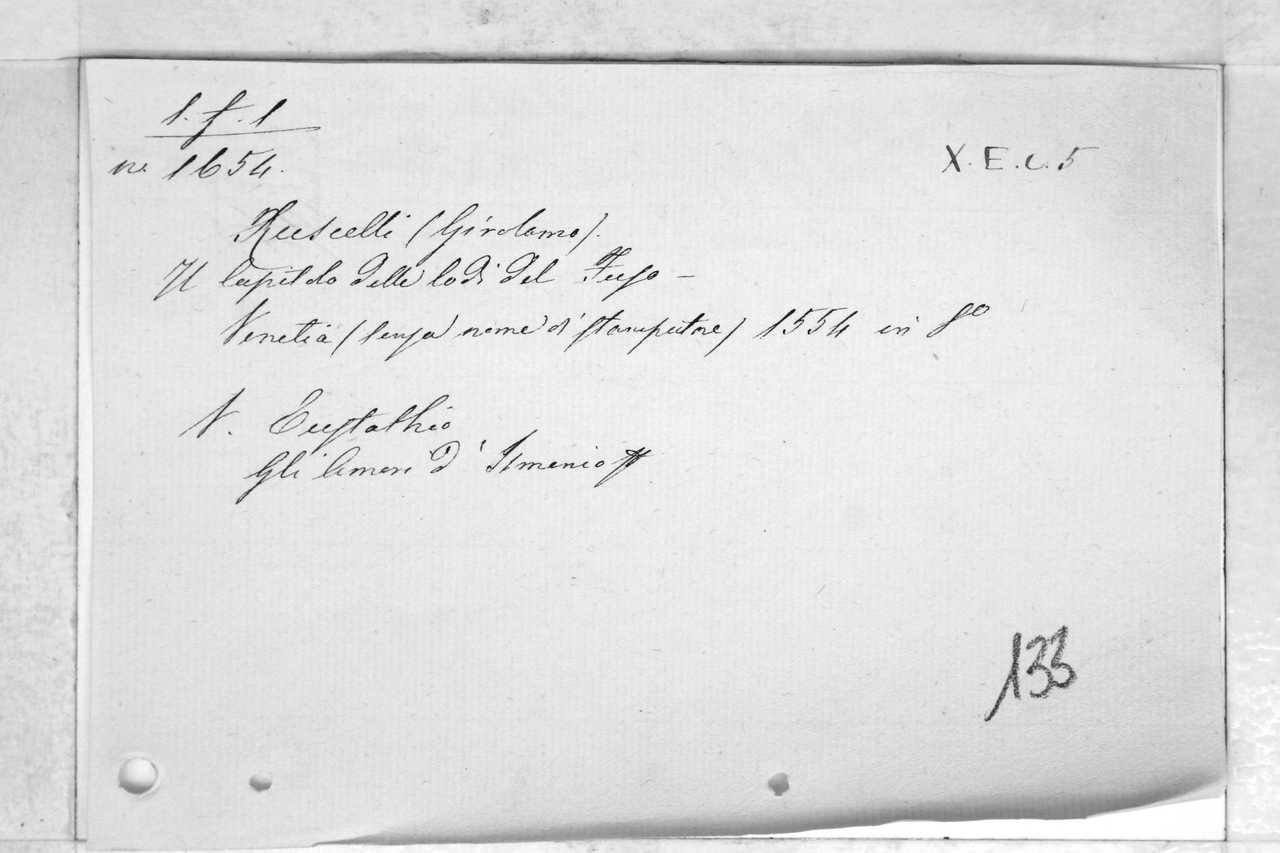 1. f. 1
no. 1654.
X. E. c. 5
Ruscelli (Girolamo).
Il Capitolo delle lodi del Fuso -
Venetia (senza nome di stampatore) 1554 in 8º
V. Eustathio
Gli Amori d'Ismenio
133